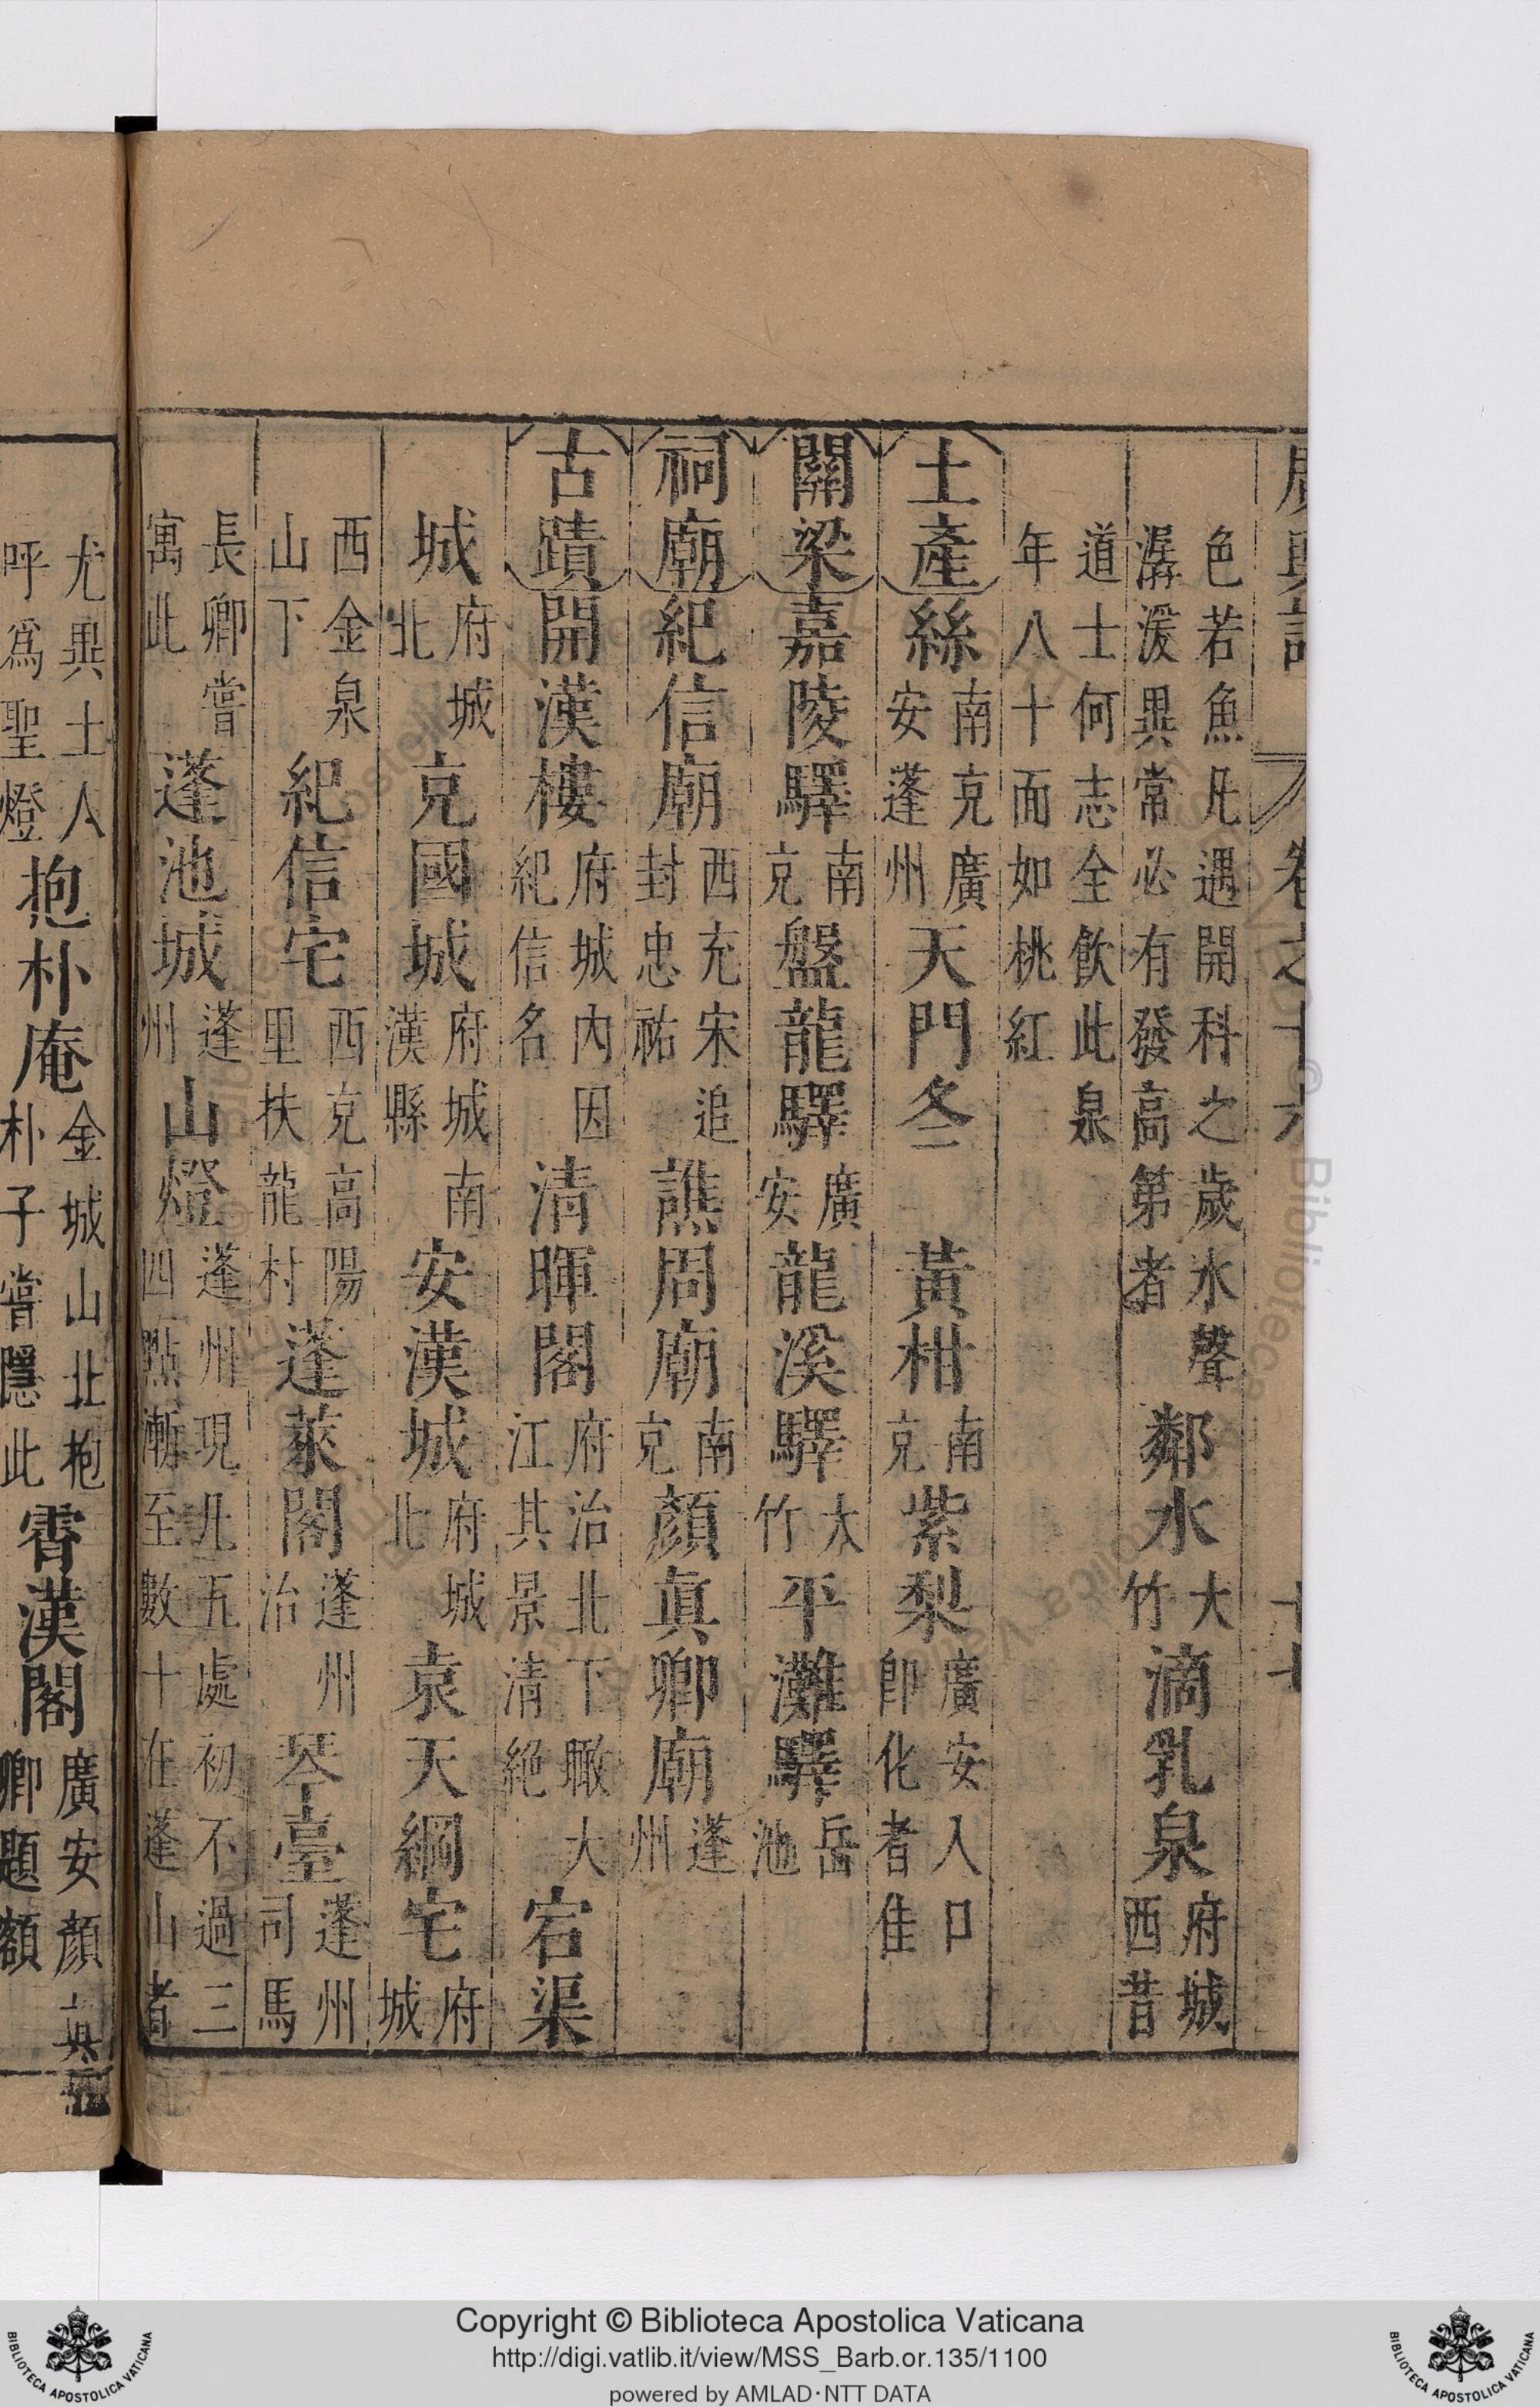 廣輿記 卷之十六 十七
色若魚凡遇開科之歲水聲
潺湲異常必有發高第者 鄰水大竹 滴乳泉府城西昔
道士何志全飲此泉
年八十面如桃紅
土產 絲南充廣安蓬州 天門冬 黃柑南充 紫梨廣安入口卽化者佳
關梁 嘉陵驛南充 盤龍驛廣安 龍溪驛大竹 平灘驛岳池
祠廟 紀信廟西充宋追封忠祐 譙周廟南充 顏眞卿廟蓬州
古蹟 開漢樓府城內因紀信名 清暉閣府治北下瞰大江其景清絕 宕渠
城府城北 充國城府城南漢縣 安漢城府城北 袁天綱宅府城
西金泉山下 紀信宅西充高陽里扶龍村 蓬萊閣蓬州治 琴臺蓬州司馬
長卿嘗寓此 蓬池城蓬州 山燈蓬州現凡五處初不過三四點漸至數十在蓬山者
尤異土人呼爲聖燈 抱朴庵金城山北抱朴子嘗隱此 霄漢閣廣安顏眞卿題額
Copyright © Biblioteca Apostolica Vaticana
http://digi.vatlib.it/view/MSS_Barb.or.135/1100
powered by AMLAD·NTT DATA
BIBLIOTECA APOSTOLICA VATICANA
BIBLIOTECA APOSTOLICA VATICANA